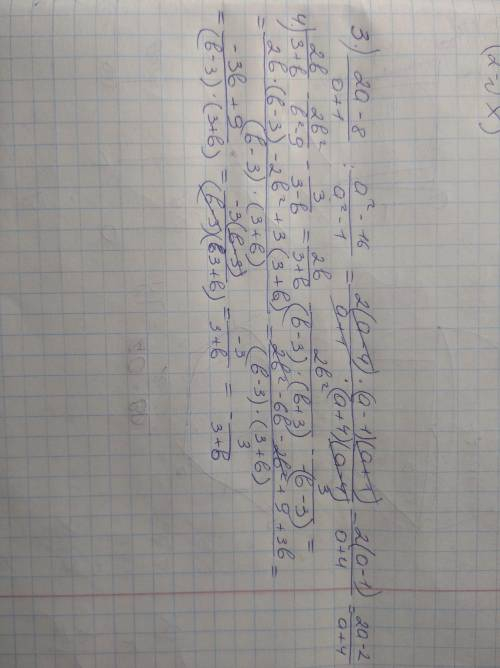 3.) \frac{2a-8}{a+1} : \frac{a²-16}{a²-1} = \frac{2(a-4)}{a+1} · \frac{(a-1)(a+1)}{(a+4)(a-4)} = \frac{2(a-1)}{a+4} = \frac{2a-2}{a+4}
4) \frac{2b}{3+b} - \frac{2b²}{b²-9} - \frac{3}{3-b} = \frac{2b}{3+b} - \frac{2b²}{(b-3)·(b+3)} - \frac{3}{-(b-3)} =
= \frac{2b·(b-3)-2b²+3(3+b)}{(b-3)·(3+b)} = \frac{2b²-6b-2b²+9+3b}{(b-3)·(3+b)} =
= \frac{-3b+9}{(b-3)·(3+b)} = \frac{-3(b-3)}{(b-3)(3+b)} = \frac{-3}{3+b} = -\frac{3}{3+b}